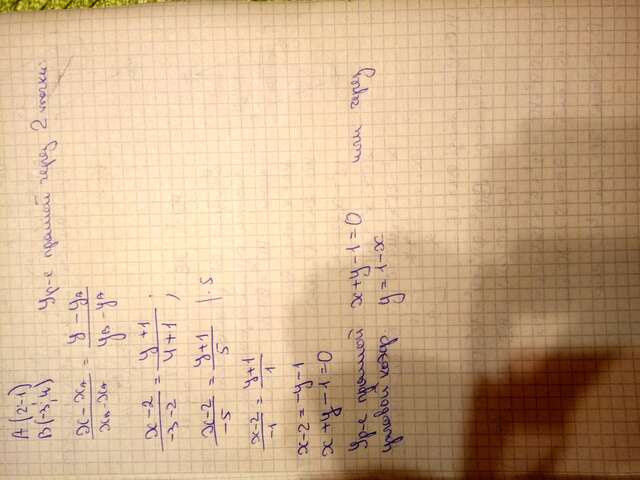 A(2-1)
B(-3;4) Ур-е прямой через 2 точки.
(x-xA)/(xB-xA) = (y-yA)/(yB-yA)
(x-2)/(-3-2) = (y+1)/(4+1);
(x-2)/(-5) = (y+1)/5 |·5
(x-2)/(-1) = (y+1)/1
x-2=-y-1
x+y-1=0
Ур-е прямой x+y-1=0 или через
угловой коэф y=1-x